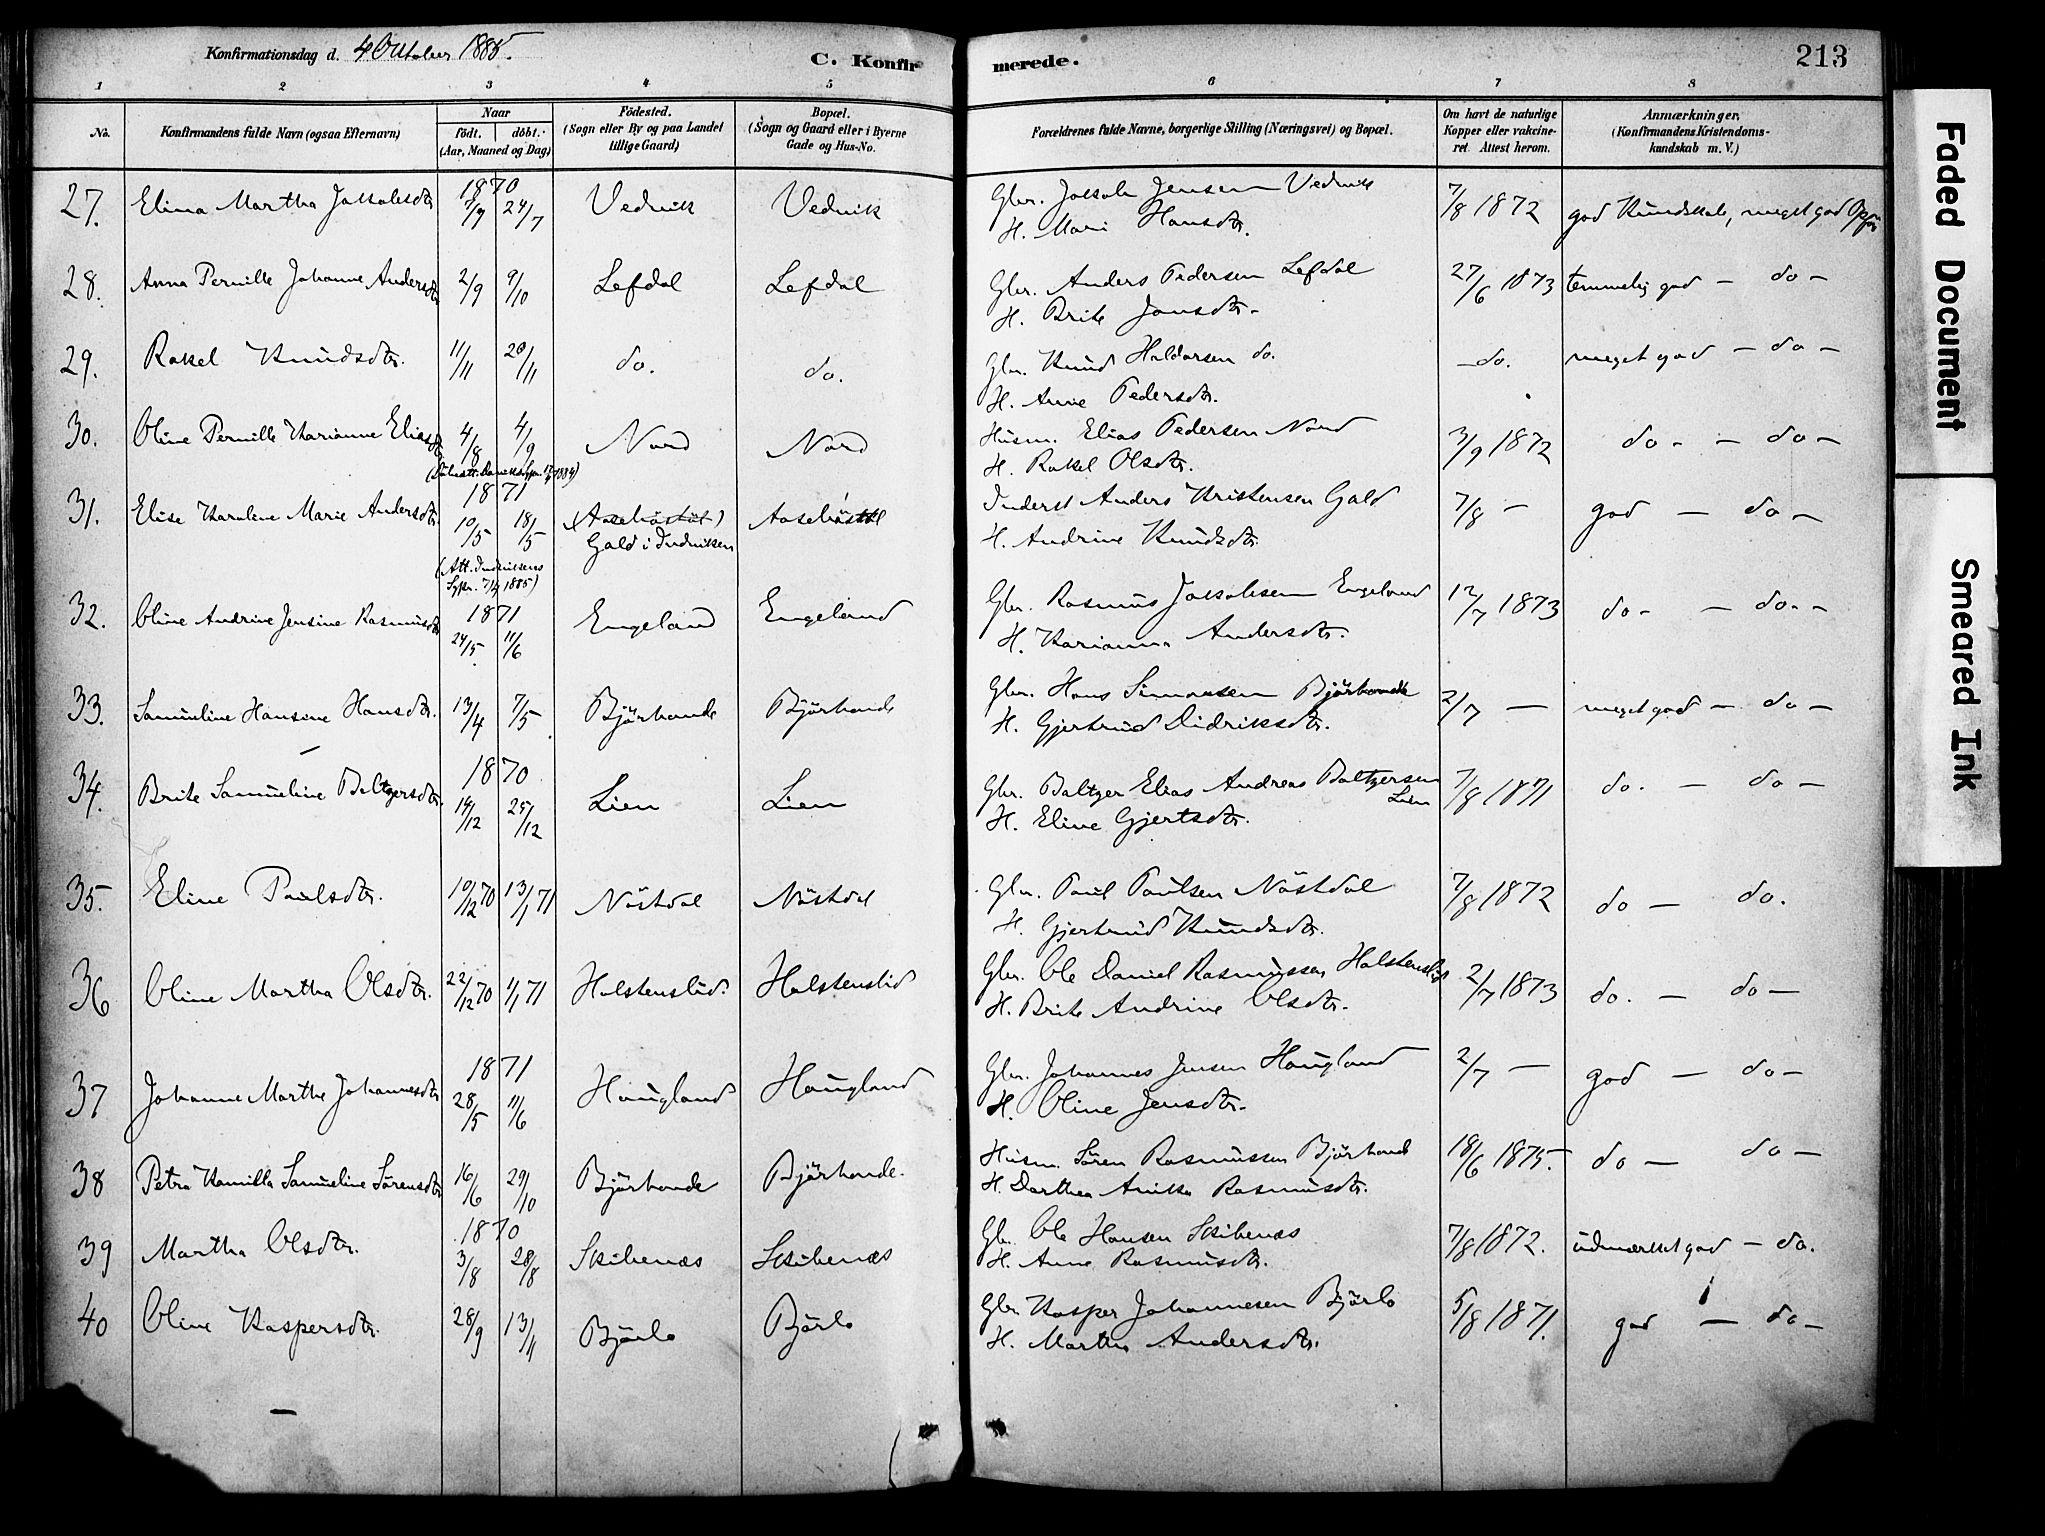 Konfirmationsdag d. 4 October 1885.
C. Konfir
merede.
213
1 2 3 4 5 6 7 8
No.
Konfirmandens fulde Navn (ogsaa Efternavn)
Naar
født. døbt.
(Aar, Maaned og Dag)
Födested.
(Sogn eller By og paa Landet
tillige Gaard)
Bopæl.
(Sogn og Gaard eller i Byerne
Gade og Hus-No.
Forældrenes fulde Navne, borgerlige Stilling (Næringsvei) og Bopæl.
Om havt de naturlige
Kopper eller vakcine-
ret. Attest herom.
Anmærkninger.
(Konfirmandens Kristendoms-
kundskab m. V.)
27. Elina Martha Jakobsdtr 1870 24/7 Vedvik Vedvik Gbr. Jakob Jensen Vedvik 7/8 1872 god Kundskab, meget god Opf.
H. Mari Hansdtr.
28. Anna Pernille Johanne Andersdtr 2/9 9/10 Lefdal Lefdal Gbr. Anders Pedersen Lefdal 27/6 1873 temmelig god – do –
H. Brite Jonsdtr.
29. Rakel Knudsdtr. 11/11 20/11 do. do. Gbr. Knud Haldorsen do. – do. meget god – do –
H. Anne Pedersdtr.
30. Oline Pernille Karianne Eliasdtr 4/8 4/9 Nord Nord Husm. Elias Pedersen Nord 3/9 1872 do. – do –
H. Rakel Olsdtr.
31. Elise Karoline Marie Andersdtr. 1871 10/5 18/5 (Aaseböstöl) Aasebö Inderst Anders Kristensen Gald 7/8 – god – do –
Gald i Indviken
H. Andrine Knudsdtr.
(Att. Indvikens
Sspr. 1885)
32. Oline Andrine Jensine Rasmusdtr 1871 24/5 11/6 Engeland Engeland Gbr. Rasmus Jakobsen Engeland 12/7 1873 do. – do. –
H. Karianna Andersdtr.
33. Samueline Hansine Hansdtr. 13/4 7/5 Björhovde Björhovde Gbr. Hans Simonsen Björhovde 2/7 – meget god – do –
H. Gjertrud Didriksdtr.
34. Brite Samueline Baltzersdtr. 1870 14/12 25/12 Lien Lien Gbr. Baltzer Elias Andreas Baltzersen 7/8 1871 do. – do –
Lien
H. Eline Gjertsdtr.
35. Eline Paulsdtr. 10/12 70 13/1 71 Nöstdal Nöstdal Gbr. Paul Paulsen Nöstdal 7/8 1872 do – do.
H. Gjertrud Knudsdtr.
36 Oline Martha Olsdtr. 22/12 70 1/1 71 Holstenslid Holstenslid Gbr. Ole Daniel Rasmussen Holstenslid 2/7 1873 do. – do –
H. Brite Andrine Olsdtr.
37 Johanne Marthe Johannesdtr 1871 28/5 11/6 Haugland Haugland Gbr. Johannes Jensen Haugland 2/7 – god – do –
H. Oline Jensdtr.
38 Petra Kamilla Samueline Sörensdtr 16/6 29/10 Björhovde Björhovde. Husm. Sören Rasmussen Björhovde 18/6 1875. do – do –
H. Dorthea Anitta Rasmusdtr.
39 Martha Olsdtr. 1870 3/8 28/8 Skibenæs Skibenæs Gb. Ole Hansen Skibenæs 7/8 1872. udmærket god – do.
H. Anne Rasmusdtr.
40 Oline Kaspersdtr. 28/9 13/11 Björlo Björlo Gbr Kasper Johannesen Björlo 5/8 1871. god – do –
H. Martha Andersdtr.
Faded Document
Smeared Ink